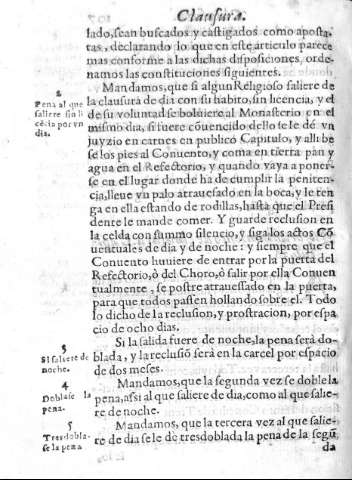 Clausura.
lado, sean buscados y castigados como aposta-
tas, declarando lo que en este articulo parece
mas conforme a las dichas disposiciones, orde-
namos las constituciones siguientes.
2
Pena al que
saliere sin li
cẽcia por vn
dia.
Mandamos, que si algun Religioso saliere de
la clausura de dia con su habito, sin licencia, y el
de su voluntad se boluiere al Monasterio en el
mismo dia, si fuere cõuencido dello se le dè vn
juyzio en carnes en publicò Capitulo, y alli be
se los pies al Conuento, y coma en tierra pan y
agua en el Refectorio, y quando vaya a poner-
se en el lugar donde ha de cumplir la peniten-
cia, lleue vn palo atrauesado en la boca, y le ten
ga en ella estando de rodillas, hasta que el Presi
dente le mande comer. Y guarde reclusion en
la celda con summo silencio, y siga los actos Cõ
uentuales de dia y de noche: y siempre que el
Conuento huuiere de entrar por la puerta del
Refectorio, ò del Choro, ò salir por ella Conuen
tualmente, se postre atrauessado en la puerta,
para que todos passen hollando sobre el. Todo
lo dicho de la reclusion, y prostracion, por espa
cio de ocho dias.
3
Si saliere de
noche.
Si la salida fuere de noche, la pena será do-
blada, y la reclusiõ será en la carcel por espacio
de dos meses.
4
Doblase la
pena.
Mandamos, que la segunda vez se doble la
pena, assi al que saliere de dia, como al que salie-
re de noche.
5
Tresdobla-
se la pena
Mandamos, que la tercera vez al que salie-
re de dia se le de tresdoblada la pena de la segũ
da